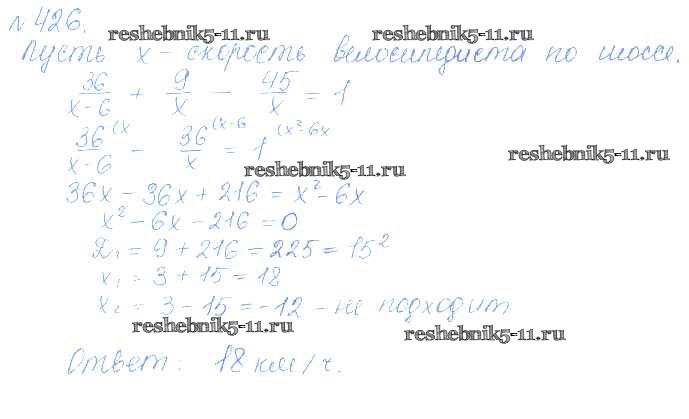 № 426.
reshebnik5-11.ru reshebnik5-11.ru
Пусть x - скорость велосипедиста по шоссе.
36/(x-6) + 9/x - 45/x = 1
36/(x-6) (x - 36/x (x-6 = 1 (x²-6x
reshebnik5-11.ru
reshebnik5-11.ru
36x - 36x + 216 = x² - 6x
x² - 6x - 216 = 0
D₁ = 9 + 216 = 225 = 15²
x₁ = 3 + 15 = 18
x₂ = 3 - 15 = -12 - не подходит
reshebnik5-11.ru reshebnik5-11.ru
Ответ: 18 км/ч.